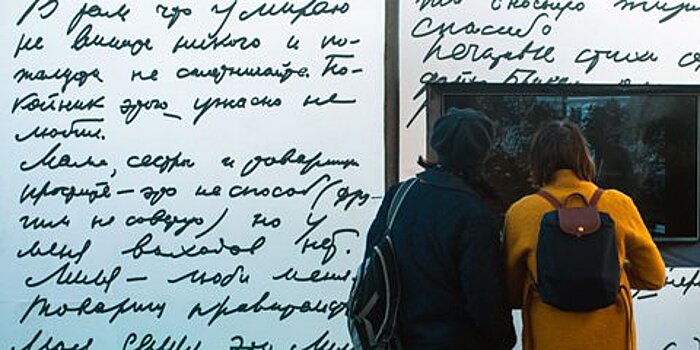 В том что умираю
не вините никого и по-
жалуйста не сплетничайте. По-
койник этого ужасно не
любил.
Мама, сестры и товарищи
простите — это не способ (дру-
гим не советую) но у
меня выходов нет.
Лиля — люби меня.
Товарищ правительст
Моя семья это
спасибо
стихи